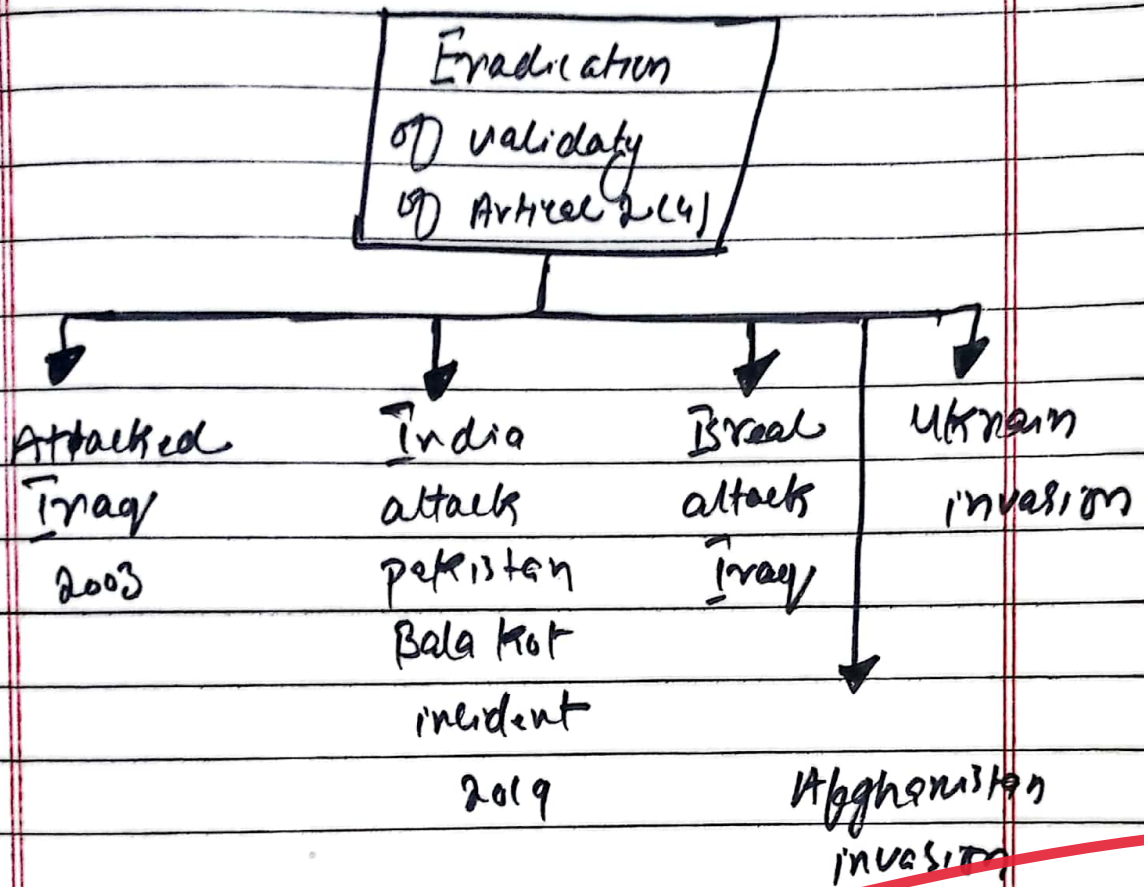 Eradication
of validaty
of Artical 2(4)
Attacked
Iraq
2003
India
attack
pakistan
Bala kot
incident
2019
Isreal
attack
Iraq
Afghanistan
invasion
Ukrain
invasion